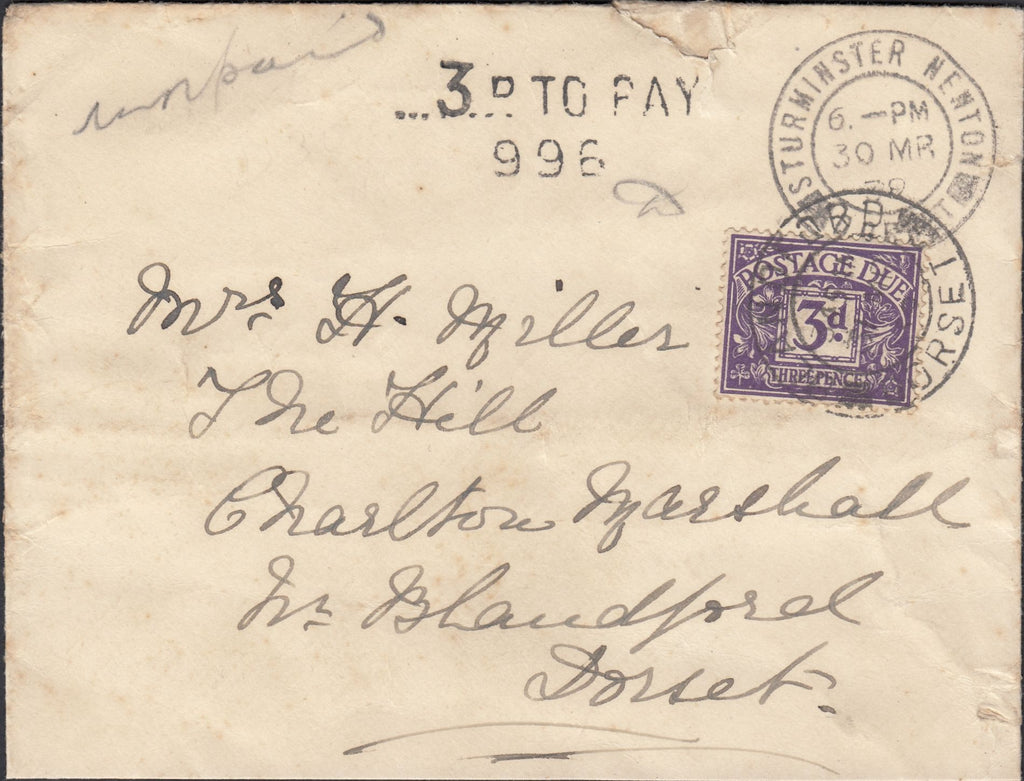 unpaid
3D TO PAY
996
STURMINSTER NEWTON
6.-PM
30 MR
39
POSTAGE DUE
3d.
THREE PENCE
DORSET
Mrs H. Miller
The Hill
Charlton Marshall
Nr Blandford
Dorset.